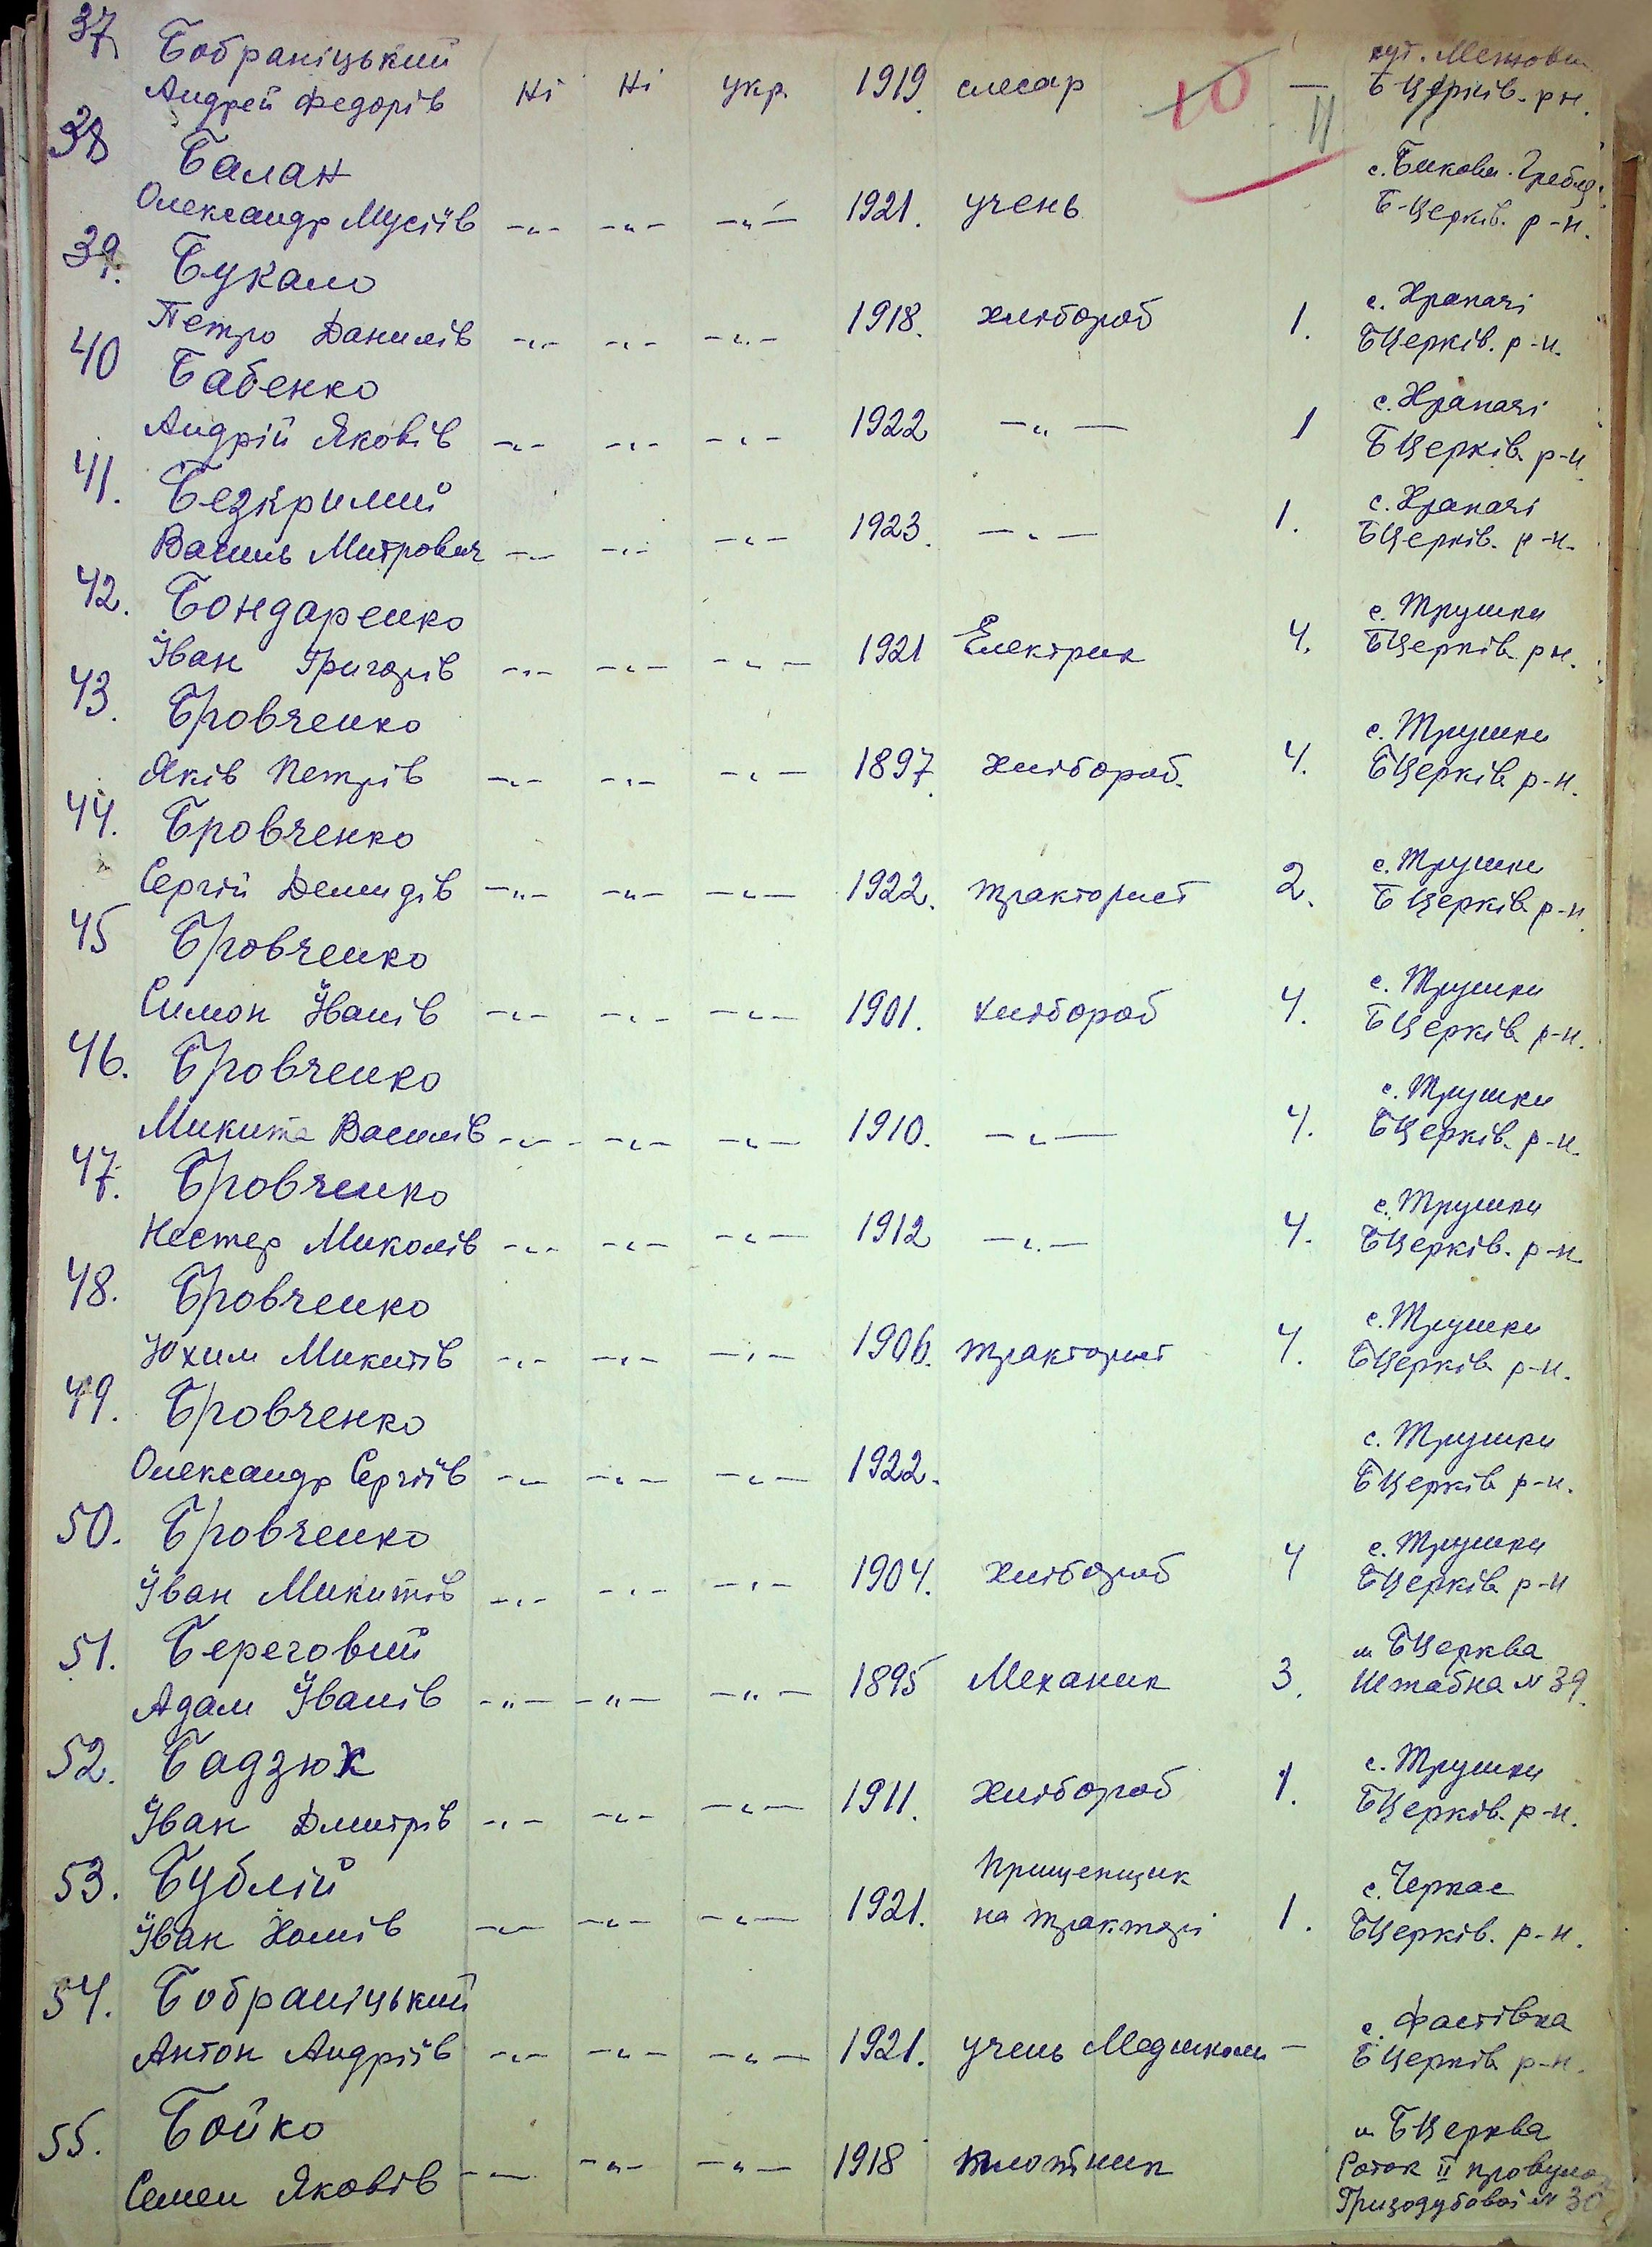 37
Бобраніцький
хут.
Андрей Федорів Ні Ні укр. 1919. слесар 10 — Б Церків. рн.
11
38 Балан с. Бикова. Гребля
Олександр Мусіїв —„— —„— —„— 1921. учень Б-Церків. р-н.
39. Букало с. Храпачі
Петро Данилів —„— —„— —„— 1918. хлібороб 1. БЦерків. р-н.
40 Бабенко с. Храпачі
Андрій Яковів —„— —„— —„— 1922 —„— 1 БЦерків р-н
41. Безкрилий с. Храпачі
Василь Митрович —„— —„— —„— 1923. —„— 1. БЦерків. р-н.
42. Бондаренко с. Трушки
Іван Григорів —„— —„— —„— 1921 Електрик 4. БЦерків рн.
43. Бровченко с. Трушки
Яків Петрів —„— —„— —„— 1897. хлібороб. 4. БЦерків р-н.
44. Бровченко с. Трушки
Сергій Демидів —„— —„— —„— 1922. тракторист 2. БЦерків р-н.
45 Бровченко с. Трушки
Симон Іванів —„— —„— —„— 1901. хлібороб 4. БЦерків р-н.
46. Бровченко с. Трушки
Микита Василів —„— —„— —„— 1910. —„— 4. БЦерків. р-н.
47. Бровченко с. Трушки
Нестер Миколів —„— —„— —„— 1912 —„— 4. БЦерків. р-н
48. Бровченко с. Трушки
Юхим Микитів —„— —„— —„— 1906. тракторист 4. БЦерків р-н.
49. Бровченко с. Трушки
Олександр Сергіїв —„— —„— —„— 1922. БЦерків р-н.
50. Бровченко с. Трушки
Іван Микитів —„— —„— —„— 1904. хлібороб 4 БЦерків р-н
51. Береговий м БЦерква
Адам Іванів —„— —„— —„— 1895 Механик 3. Штабна № 39.
52. Бадзюк с. Трушки
Іван Дмитрів —„— —„— —„— 1911. хлібороб 1. БЦерків. р-н.
53. Бублій Прищепщик с. Черкас
Іван Хомів —„— —„— —„— 1921. на тракторі 1. БЦерків. р-н.
54. Бобраніцький с. Фастівка
Антон Андріїв —„— —„— —„— 1921. учень Медшколи — БЦерків р-н.
55. Бойко м БЦерква
Семен Яковів —„— —„— —„— 1918 плотник Роток II провулок
Гризодубової № 30